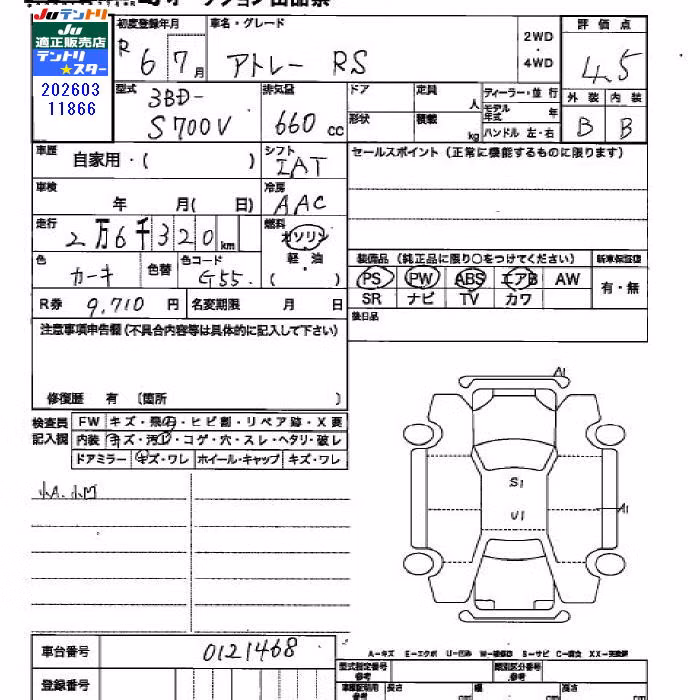 Juテントリ
Ju
適正販売店
テントリ
★スター
202603
11866
初度登録年月
R 6 7月
車名・グレード
アトレー RS
2WD
・
4WD
評価点
4.5
外装 内装
B B
型式
3BD-
S700V
排気量
660 cc
ドア
形状
定員
人
積載
kg
ディーラー・並行
モデル年式 年
ハンドル 左・右
車歴
自家用・( )
シフト
IAT
セールスポイント(正常に機能するものに限ります)
車検
年 月( 日)
冷房
AAC
走行
2万6千320km
燃料
ガソリン
軽・油
( )
色
カーキ
色替
色コード
G55
装備品(純正品に限り○をつけてください)
新車保証書
PS PW ABS エアB AW
SR ナビ TV カワ
有・無
後日品
R券 9,710 円
名変期限 月 日
注意事項申告欄(不具合内容等は具体的に記入して下さい)
修復歴 有 〔箇所 〕
検査員
記入欄
FW キズ・飛石・ヒビ割・リペア跡・X要
内装 キズ・汚れ・コゲ・穴・スレ・ヘタリ・破レ
ドアミラー キズ・ワレ ホイール・キャップ キズ・ワレ
小A.小凹
A1
S1
U1
A1
車台番号
0121468
登録番号
A-キズ E-エクボ U-凹み W-補修跡 S-サビ C-腐食 XX-交換済
型式指定番号
類別区分番号
長さ cm 幅 cm 高さ cm